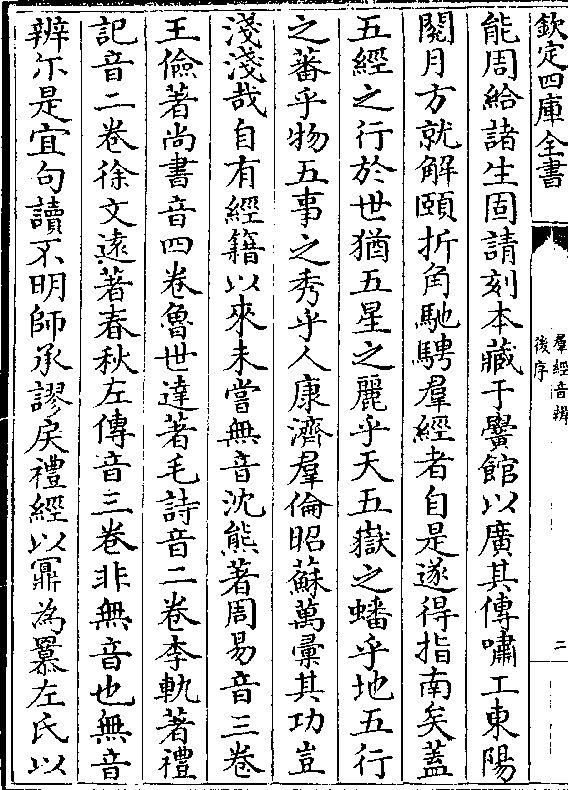 欽定四庫全書
羣經音辨
後序
二
能周給諸生固請刻本藏于黌館以廣其傳嘯工東陽
閱月方就解頤折角馳騁羣經者自是遂得指南矣蓋
五經之行於世猶五星之麗乎天五嶽之蟠乎地五行
之蕃乎物五事之秀乎人康濟羣倫昭蘇萬彚其功豈
淺淺哉自有經籍以來未嘗無音沈熊著周易音三卷
王儉著尚書音四卷魯世達著毛詩音二卷李軌著禮
記音二卷徐文遠著春秋左傳音三卷非無音也無音
辨尓是宜句讀不明師承謬戾禮經以鼏為冪左氏以